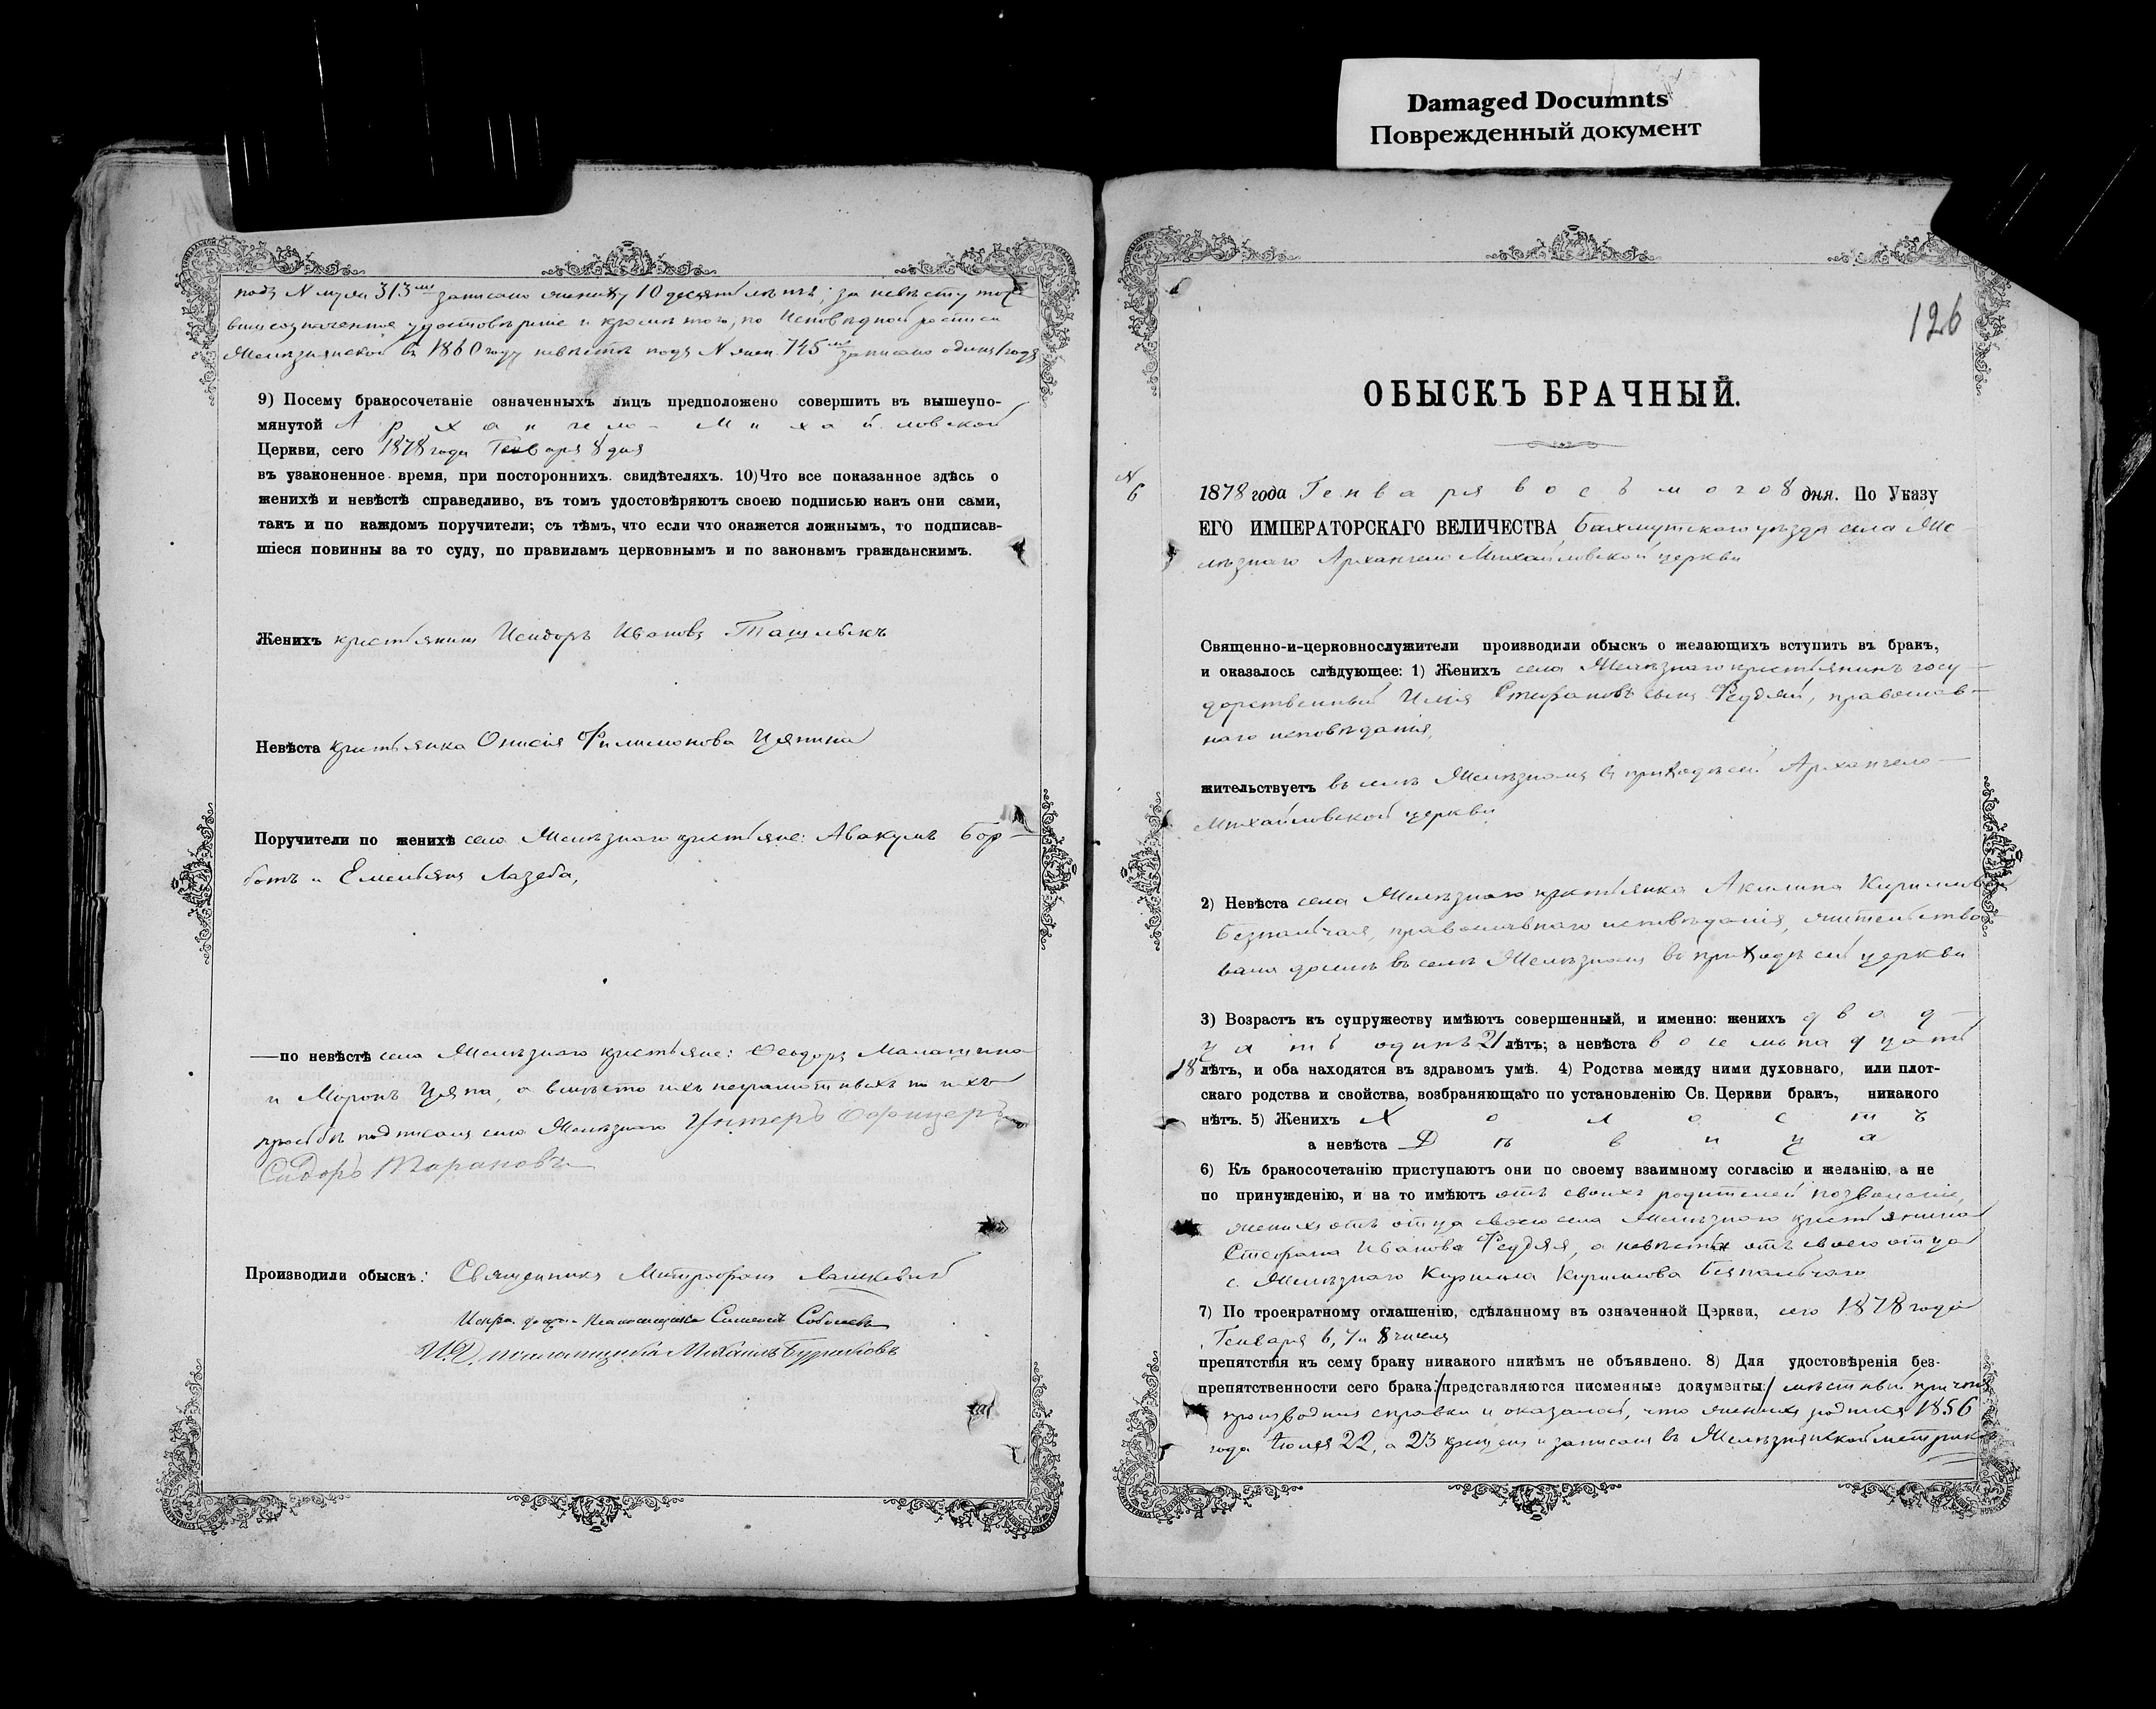 Damaged Documnts
Поврежденный документ
подъ N муж. 313 мъ записано жениху 10 десять лѣтъ; за невѣсту тоже
вышеозначенное удостовѣреніе и кромѣ того, по Исповѣдной росписи
Желѣзнянской въ 1860 году невѣстѣ подъ N жен. 745 мъ записано одинъ 1 годъ
9) Посему бракосочетаніе означенныхъ лицъ предположено совершить въ вышеупо-
мянутой Архангело-Михайловской
Церкви, сего 1878 года Генваря 8 дня
въ узаконенное время, при постороннихъ свидѣтеляхъ. 10) Что все показанное здѣсь о
женихѣ и невѣстѣ справедливо, въ томъ удостовѣряютъ своею подписью какъ они сами,
такъ и по каждомъ поручители; съ тѣмъ, что если что окажется ложнымъ, то подписав-
шіеся повинны за то суду, по правиламъ церковнымъ и по законамъ гражданскимъ.
Женихъ крестьянинъ Исидоръ Ивановъ Ташлыкъ
Невѣста крестьянка Онисія Филимонова Цяпина
Поручители по женихѣ села Желѣзнаго крестьяне: Авакумъ Бор-
ботъ и Емельянъ Лазеба,
—по невѣстѣ села Желѣзнаго крестьяне: Ѳеодоръ
и Миронъ Цяпа, а вмѣсто ихъ неграмотныхъ по ихъ
прозьбѣ подписалъ села Желѣзнаго Унтеръ Офицеръ
Сидоръ Тарановъ
Производили обыскъ: Священникъ Митрофанъ
Псаломщика Симеонъ Соболевъ
И. Д. псаломщика Михаилъ Бурлаковъ
126
ОБЫСКЪ БРАЧНЫЙ.
N
6
1878 года Генваря восьмого 8 дня. По Указу
ЕГО ИМПЕРАТОРСКАГО ВЕЛИЧЕСТВА, Бахмутскаго уѣзда села Же-
лѣзнаго Архангело Михайловской церкви
Священно-и-церковнослужители производили обыскъ о желающихъ вступить въ бракъ,
и оказалось слѣдующее: 1) Женихъ села Желѣзнаго крестьянинъ госу-
дарственный Илія Стефановъ сынъ Редяй, православ-
наго исповѣданія,
жительствуетъ въ селѣ Желѣзномъ въ приходѣ сей Архангело-
Михайловской церкви
2) Невѣста села Желѣзнаго крестьянка Акилина Кирилова
Безпальчая, православнаго исповѣданія, жительство-
вала доселѣ въ селѣ Желѣзномъ въ приходѣ сей церкви
3) Возрастъ къ супружеству имѣютъ совершенный, и именно: женихъ двад-
цять одинъ 21 лѣтъ; а невѣста восемьнадцать
18 лѣтъ, и оба находятся въ здравомъ умѣ. 4) Родства между ними духовнаго, или плот-
скаго родства и свойства, возбраняющаго по установленію Св. Церкви бракъ, никакого
нѣтъ. 5) Женихъ Холостъ
а невѣста Дѣвица
6) Къ бракосочетанію приступаютъ они по своему взаимному согласію и желанію, а не
по принужденію, и на то имѣютъ отъ своихъ родителей позволеніе,
женихъ отъ отца своего села Желѣзнаго крестьянина
Стефана Иванова Редяя, а невѣста отъ своего отца
с. Желѣзнаго Кирилла Кирилова Безпальчаго
7) По троекратному оглашенію, сдѣланному въ означенной Церкви, сего 1878 года
Генваря 6, 7 и 8 числа
препятствія къ сему браку никакого никѣмъ не объявлено. 8) Для удостовѣренія без-
препятственности сего брака:/представляются писменные документы:/ мѣстный причтъ
производилъ справки и оказалось, что женихъ родился 1856
года Іюля 22, а 23 крещенъ и записанъ въ Желѣзнянской метрикѣ